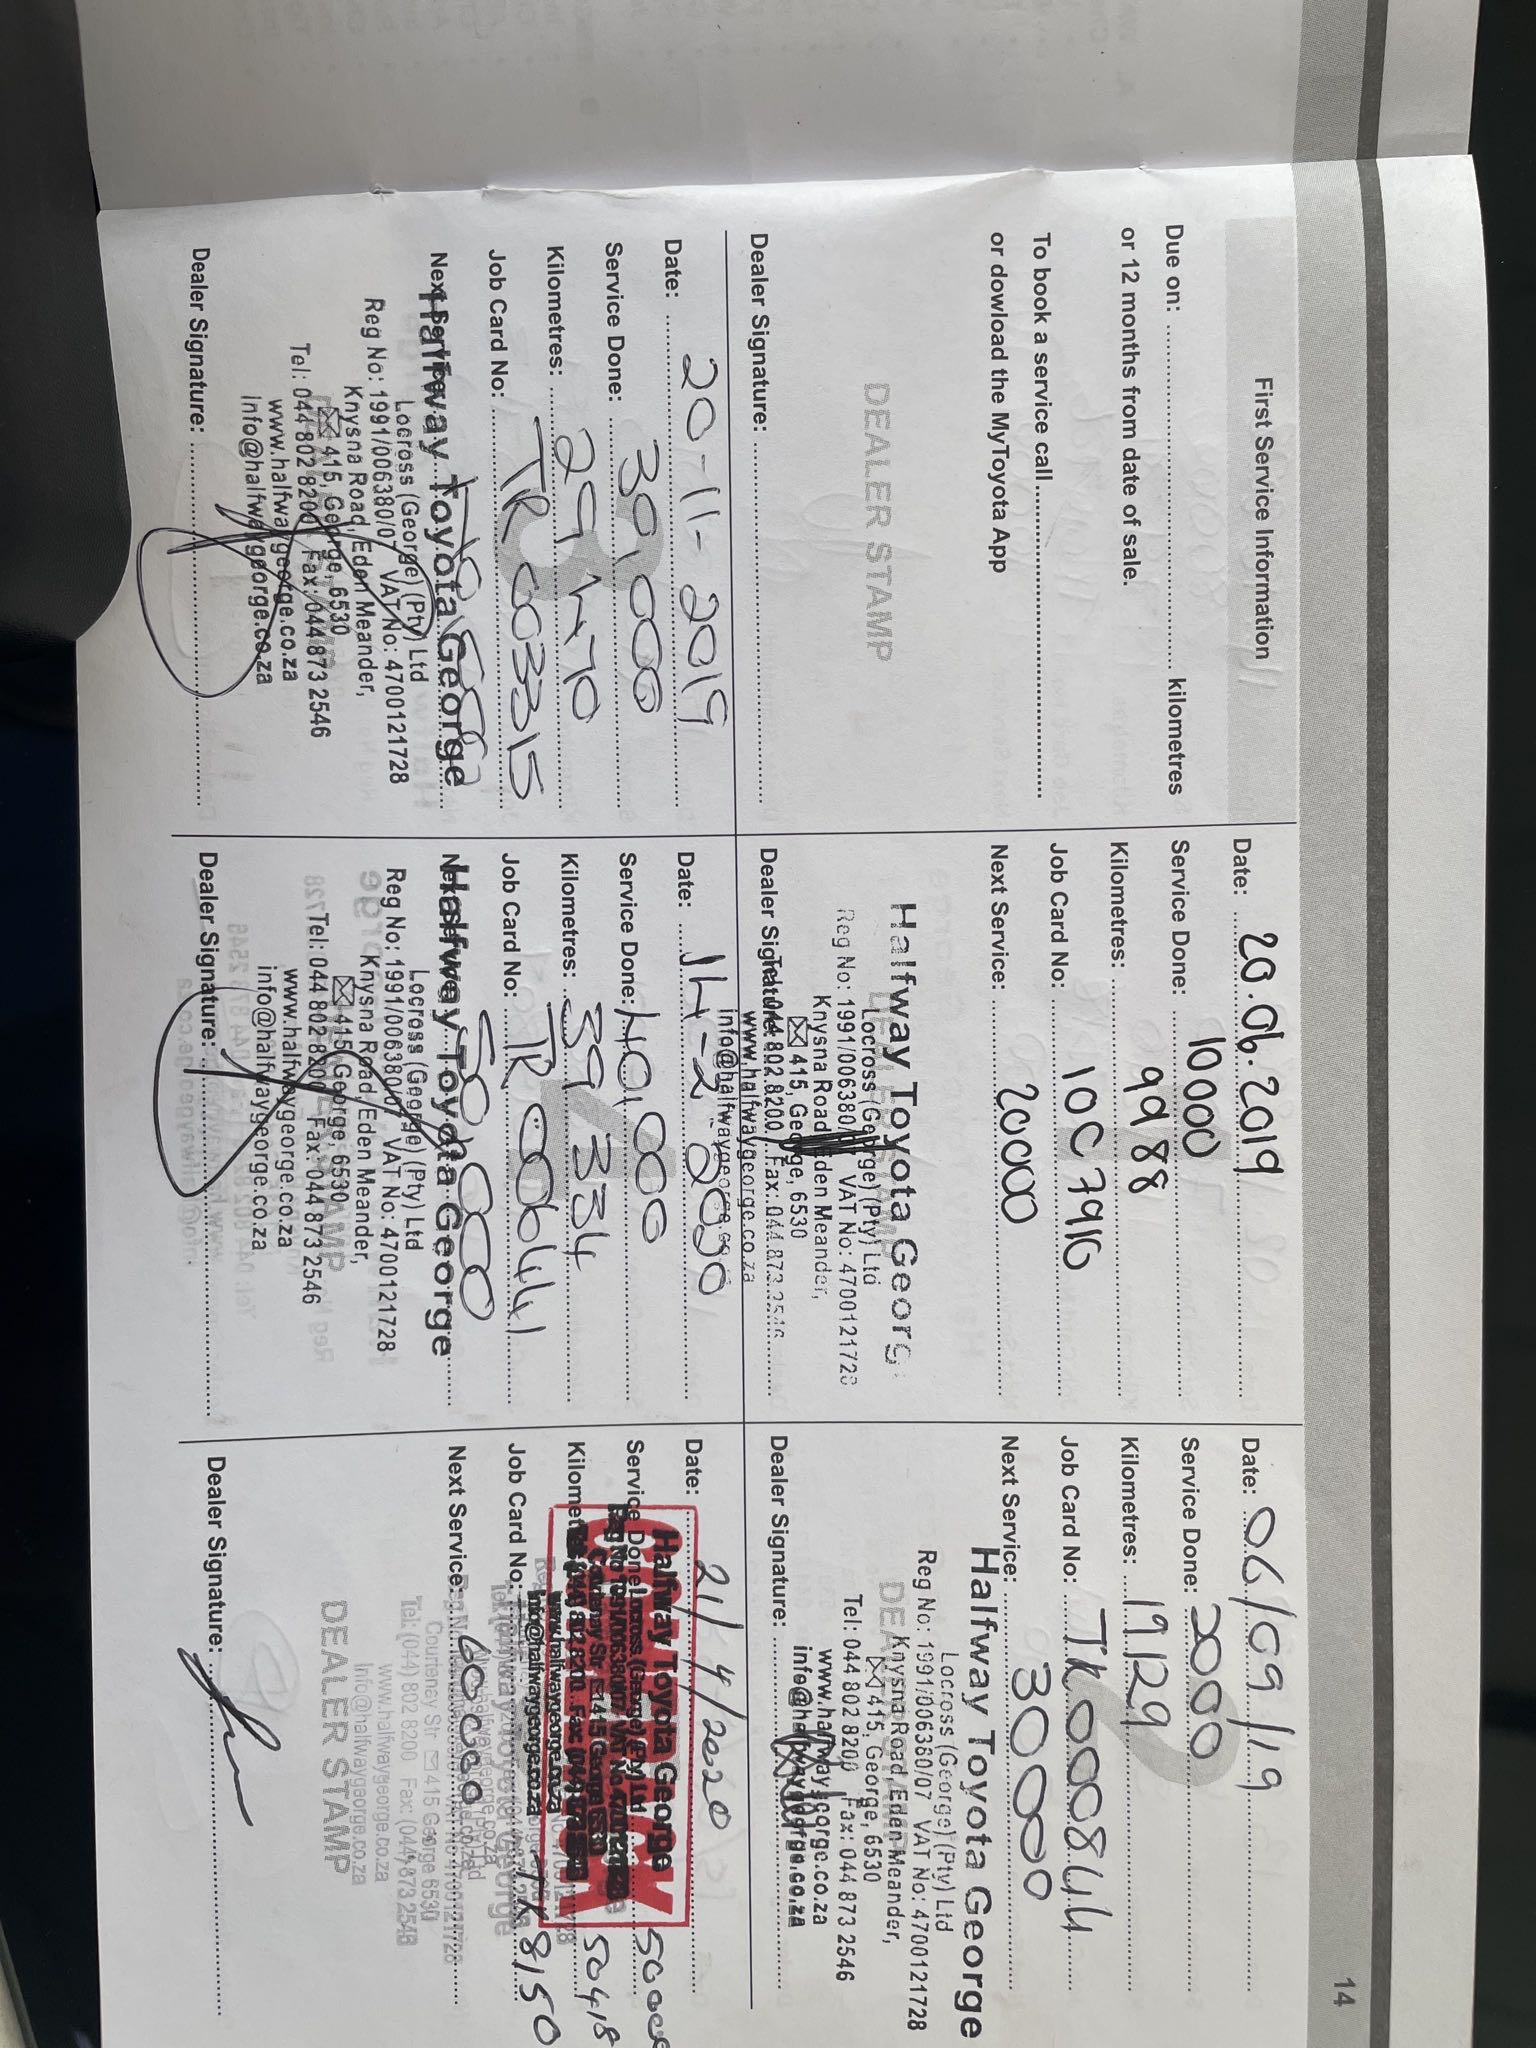 14
First Service Information
Due on: kilometres
or 12 months from date of sale.
To book a service call
or dowload the MyToyota App
DEALER STAMP
Dealer Signature:
Date: 20.06.2019
Service Done: 10000
Kilometres: 9988
Job Card No: 10C7910
Next Service: 20000
Halfway Toyota Georg
Locross (George) (Pty) Ltd
Reg No: 1991/006380/ VAT No: 4700121728
Knysna Road Eden Meander,
415, George, 6530
Tel: 044 802 8200 Fax: 044 873 2546
www.halfwaygeorge.co.za
info@halfwaygeorge.co.za
Dealer Signature:
Date: 06/09/19
Service Done: 20000
Kilometres: 19129
Job Card No: TR000844
Next Service: 30000
Halfway Toyota George
Locross (George) (Pty) Ltd
Reg No: 1991/006380/07 VAT No: 4700121728
Knysna Road, Eden Meander,
415, George, 6530
Tel: 044 802 8200 Fax: 044 873 2546
www.halfwaygeorge.co.za
info@halfwaygeorge.co.za
Dealer Signature:
Date: 20-11-2019
Service Done: 30,000
Kilometres: 29470
Job Card No: TR003315
Next Service:
Halfway Toyota George
Locross (George) (Pty) Ltd
Reg No: 1991/006380/07 VAT No: 4700121728
Knysna Road, Eden Meander,
415, George, 6530
Tel: 044 802 8200 Fax: 044 873 2546
www.halfwaygeorge.co.za
Info@halfwaygeorge.co.za
Dealer Signature:
Date: 14-2-2020
Service Done: 40,000
Kilometres: 39334
Job Card No: TR 00644
Next Service: 50000
Halfway Toyota George
Locross (George) (Pty) Ltd
Reg No: 1991/006380/07 VAT No: 4700121728
Knysna Road Eden Meander,
415, George, 6530
Tel: 044 802 8200 Fax: 044 873 2546
www.halfwaygeorge.co.za
info@halfwaygeorge.co.za
Dealer Signature:
Date: 21/4/2020
Service Done: 50000
Kilomet 50418
Job Card No: 8150
Next Service: 60000
Halfway Toyota George
Locross (George) (Pty) Ltd
Courtenay Str 415 George 6530
Tel: (044) 802 8200 Fax: (044) 873 2546
www.halfwaygeorge.co.za
info@halfwaygeorge.co.za
DEALER STAMP
Dealer Signature: